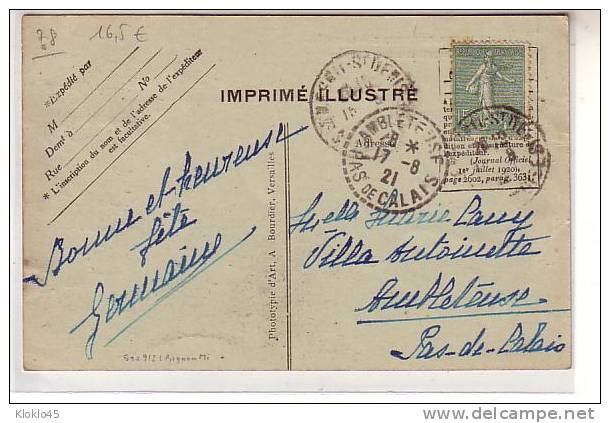 78 16,5 €
* Expédié par
M
Demt à No
Rue
* L'inscription du nom et de l'adresse de l'expéditeur
est facultative.
IMPRIMÉ ILLUSTRÉ
Adresse
AMBLETEUSE
8 *
17 -8
21
PAS DE CALAIS
(Journal Officiel
1er juillet 1920)
page 2602, parag. 363
Bonne et heureuse
fête
Germaine
Phototypie d'Art, A Bourdier, Versailles
Melle Marie Cany
Villa Antoinette
Ambleteuse
Pas-de-Calais
Kloklo45
www.delcampe.net